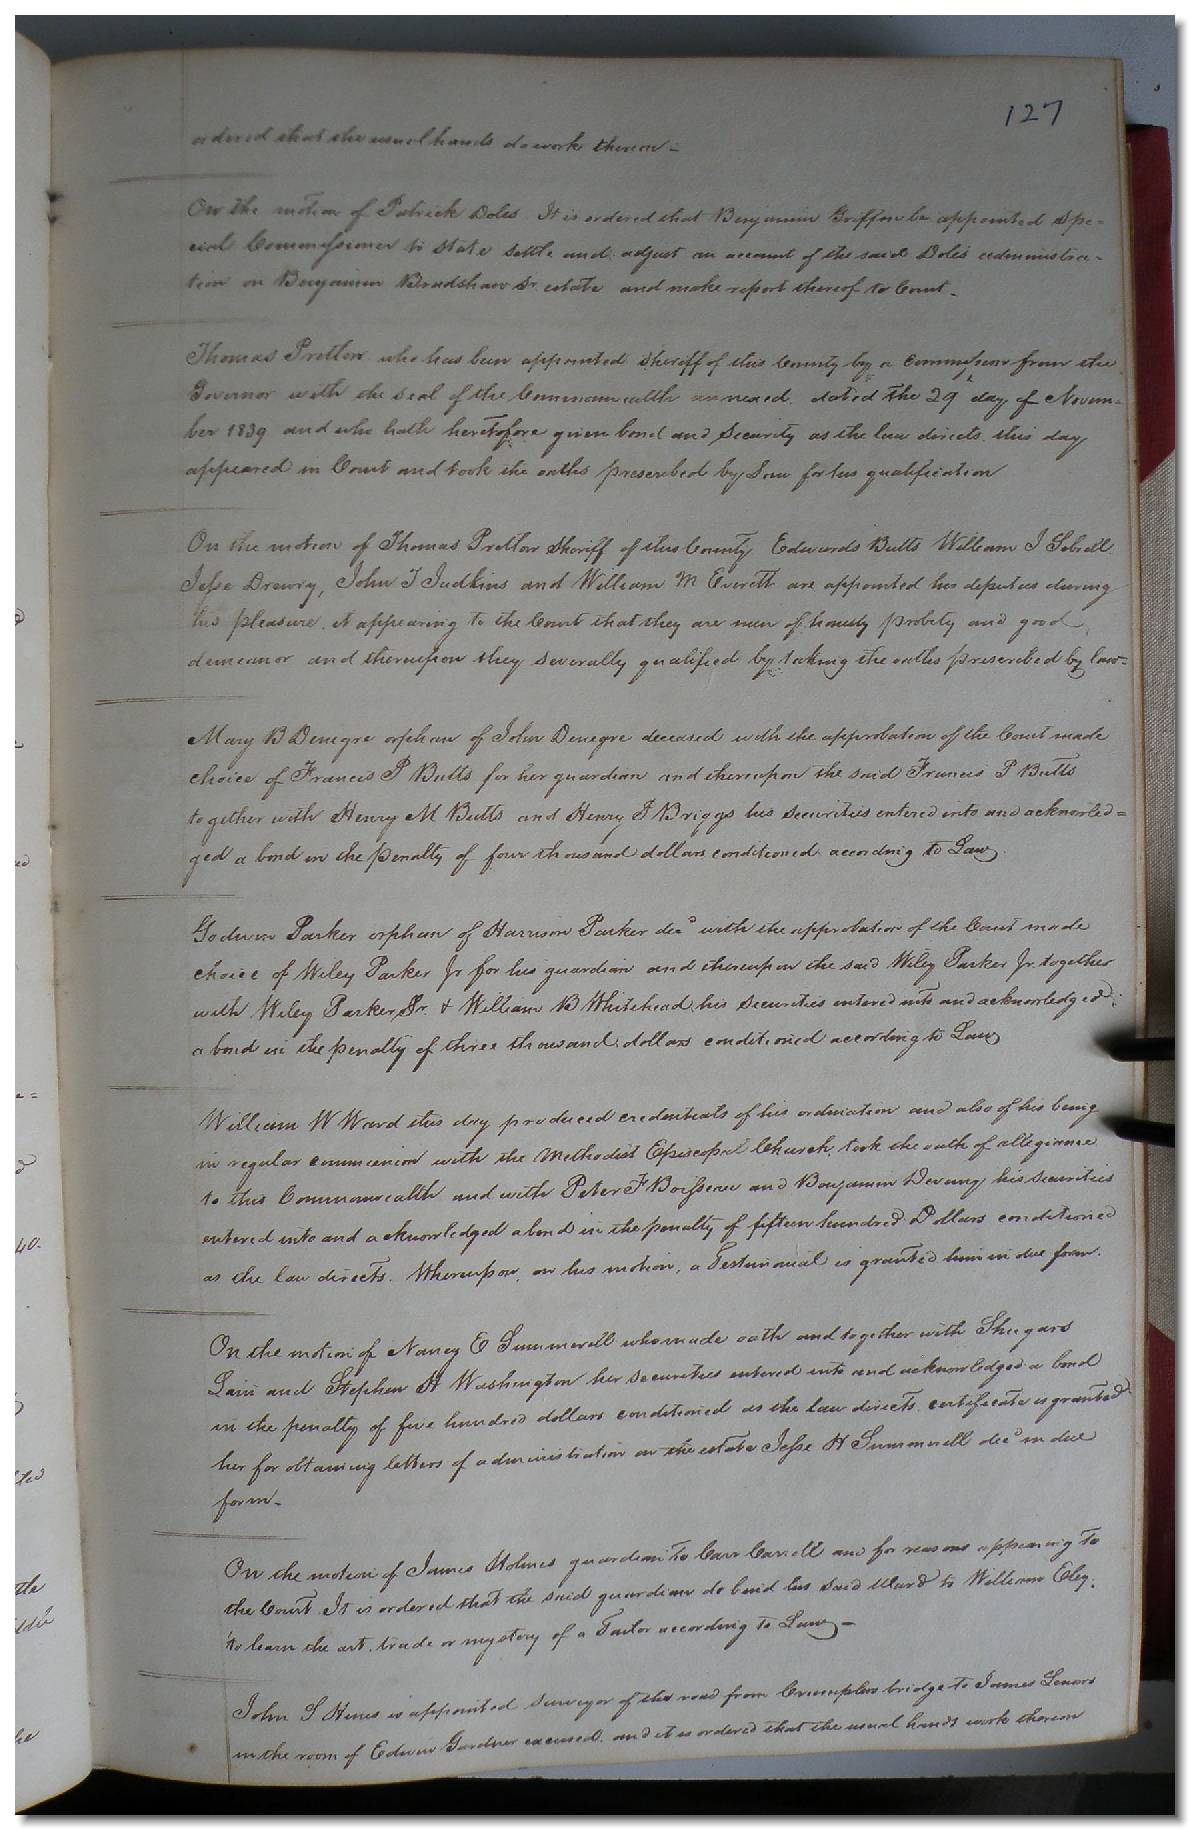 127
ordered that the usual hands do work thereon –
On the motion of Patrick Doles It is ordered that Benjamin Griffin be appointed Spe-
cial Commissioner to state settle and adjust an account of the said Doles administra-
tion on Benjamin Bradshaw Sr estate and make report thereof to Court –
Thomas Pretlow who has been appointed Sheriff of this County by a Commission from the
Governor with the seal of the Commonwealth annexed, dated the 29 day of Novem-
ber 1839 and who hath heretofore given bond and security as the law directs, this day
appeared in Court and took the oaths prescribed by Law for his qualification
On the motion of Thomas Pretlow Sheriff of this County Edwards Butts William J Sebrell
Jesse Drewry, John T Judkins and William M Everett are appointed his deputies during
his pleasure, it appearing to the Court that they are men of honesty probity and good
demeanor and thereupon they severally qualified by taking the oaths prescribed by law =
Mary B Denegre orphan of John Denegre deceased with the approbation of the Court made
choice of Francis P Butts for her guardian and thereupon the said Francis P Butts
together with Henry M Butts and Henry J Briggs his securities entered into and acknowled=
ged a bond in the penalty of four thousand dollars conditioned according to Law
Godwin Parker orphan of Harrison Parker decd with the approbation of the Court made
choice of Wiley Parker Jr for his guardian and thereupon the said Wiley Parker Jr together
with Wiley Parker Sr. & William B Whitehead his securities entered into and acknowledged
a bond in the penalty of three thousand dollars conditioned according to Law
William W Ward this day produced credentials of his ordination and also of his being
in regular communion with the Methodist Episcopal Church, took the oath of allegiance
to this Commonwealth and with Peter F Boisseau and Benjamin Devany his securities
entered into and acknowledged a bond in the penalty of fifteen hundred Dollars conditioned
as the law directs. Whereupon, on his motion, a Testimonial is granted him in due form.
On the motion of Nancy E Summerell who made oath and together with Shugars
Lain and Stephen H Washington her securities entered into and acknowledged a bond
in the penalty of five hundred dollars conditioned as the law directs, certificate is granted
her for obtaining letters of administration on the estate Jesse H Summerell decd in due
form –
On the motion of James Holmes guardian to Carr and for reasons appearing to
the Court It is ordered that the said guardian do bind his said Ward to William Eley,
to learn the art, trade or mystery of a Tailor according to Law –
John S Hines is appointed surveyor of the road from Crumplers bridge to James
in the room of Edwin Gardner excused, and it is ordered that the usual hands work thereon